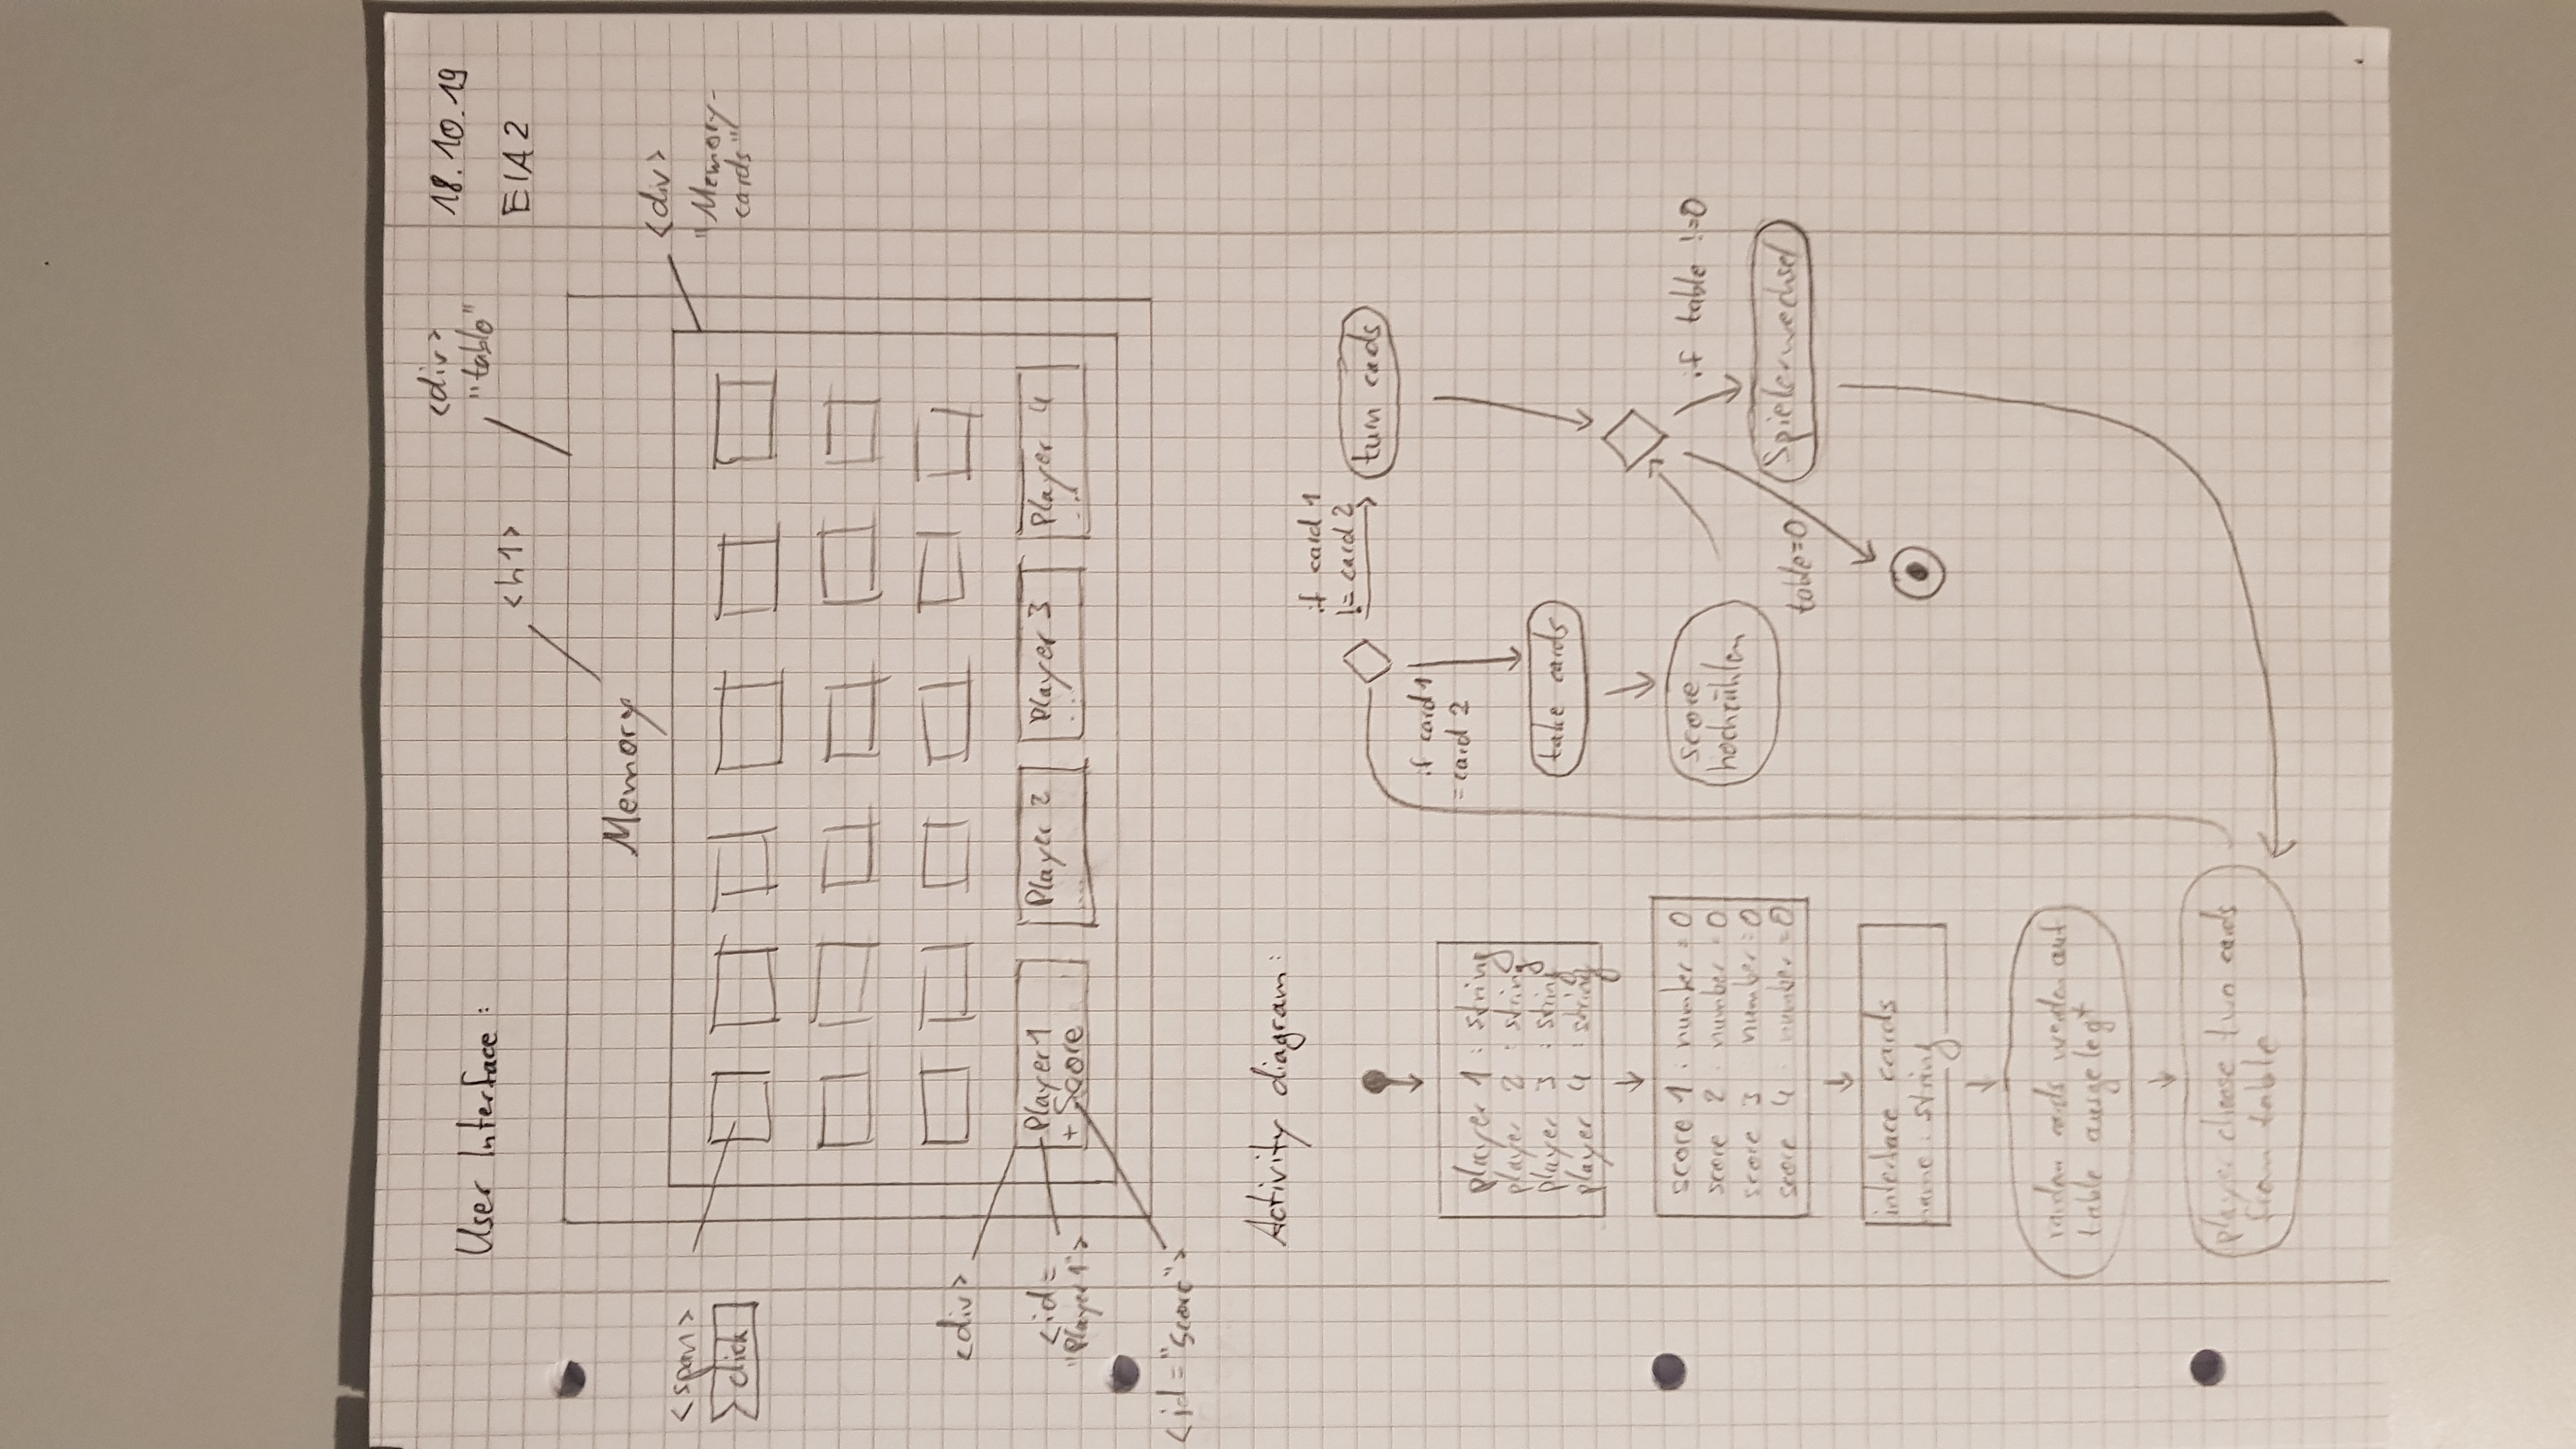 18.10.19
EIA2
User Interface:
<div>
"table"
<h1>
Memory
<div>
"Memory-
cards"
<span>
click
<div>
<id=
"Player1">
<id="Score">
Player1
+ Score
Player 2
...
Player 3
...
Player 4
...
Activity diagram:
player 1 : string
player 2 : string
player 3 : string
player 4 : string
score 1 : number = 0
score 2 : number = 0
score 3 number = 0
score 4 : number = 0
interface cards
name : string
random cards werden auf
table ausgelegt
player choose two cards
from table
if card 1
!= card 2
turn cards
if card 1
= card 2
take cards
score
hochzählen
if table !=0
table=0
Spielerwechsel